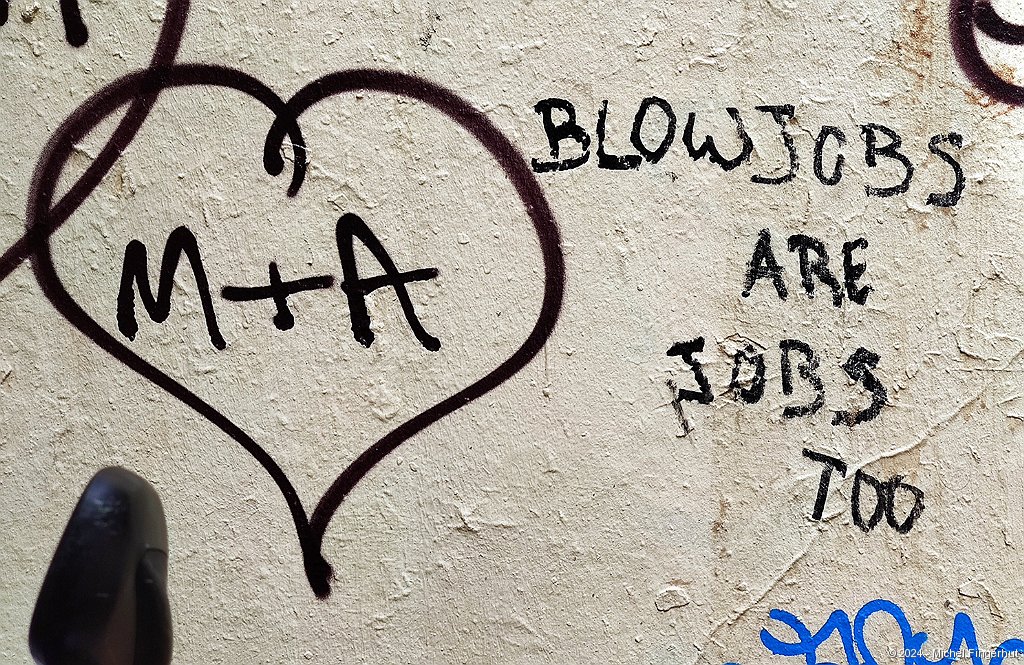 M+A
BLOWJOBS
ARE
JOBS
TOO
©2024 - Michel Fingerhut